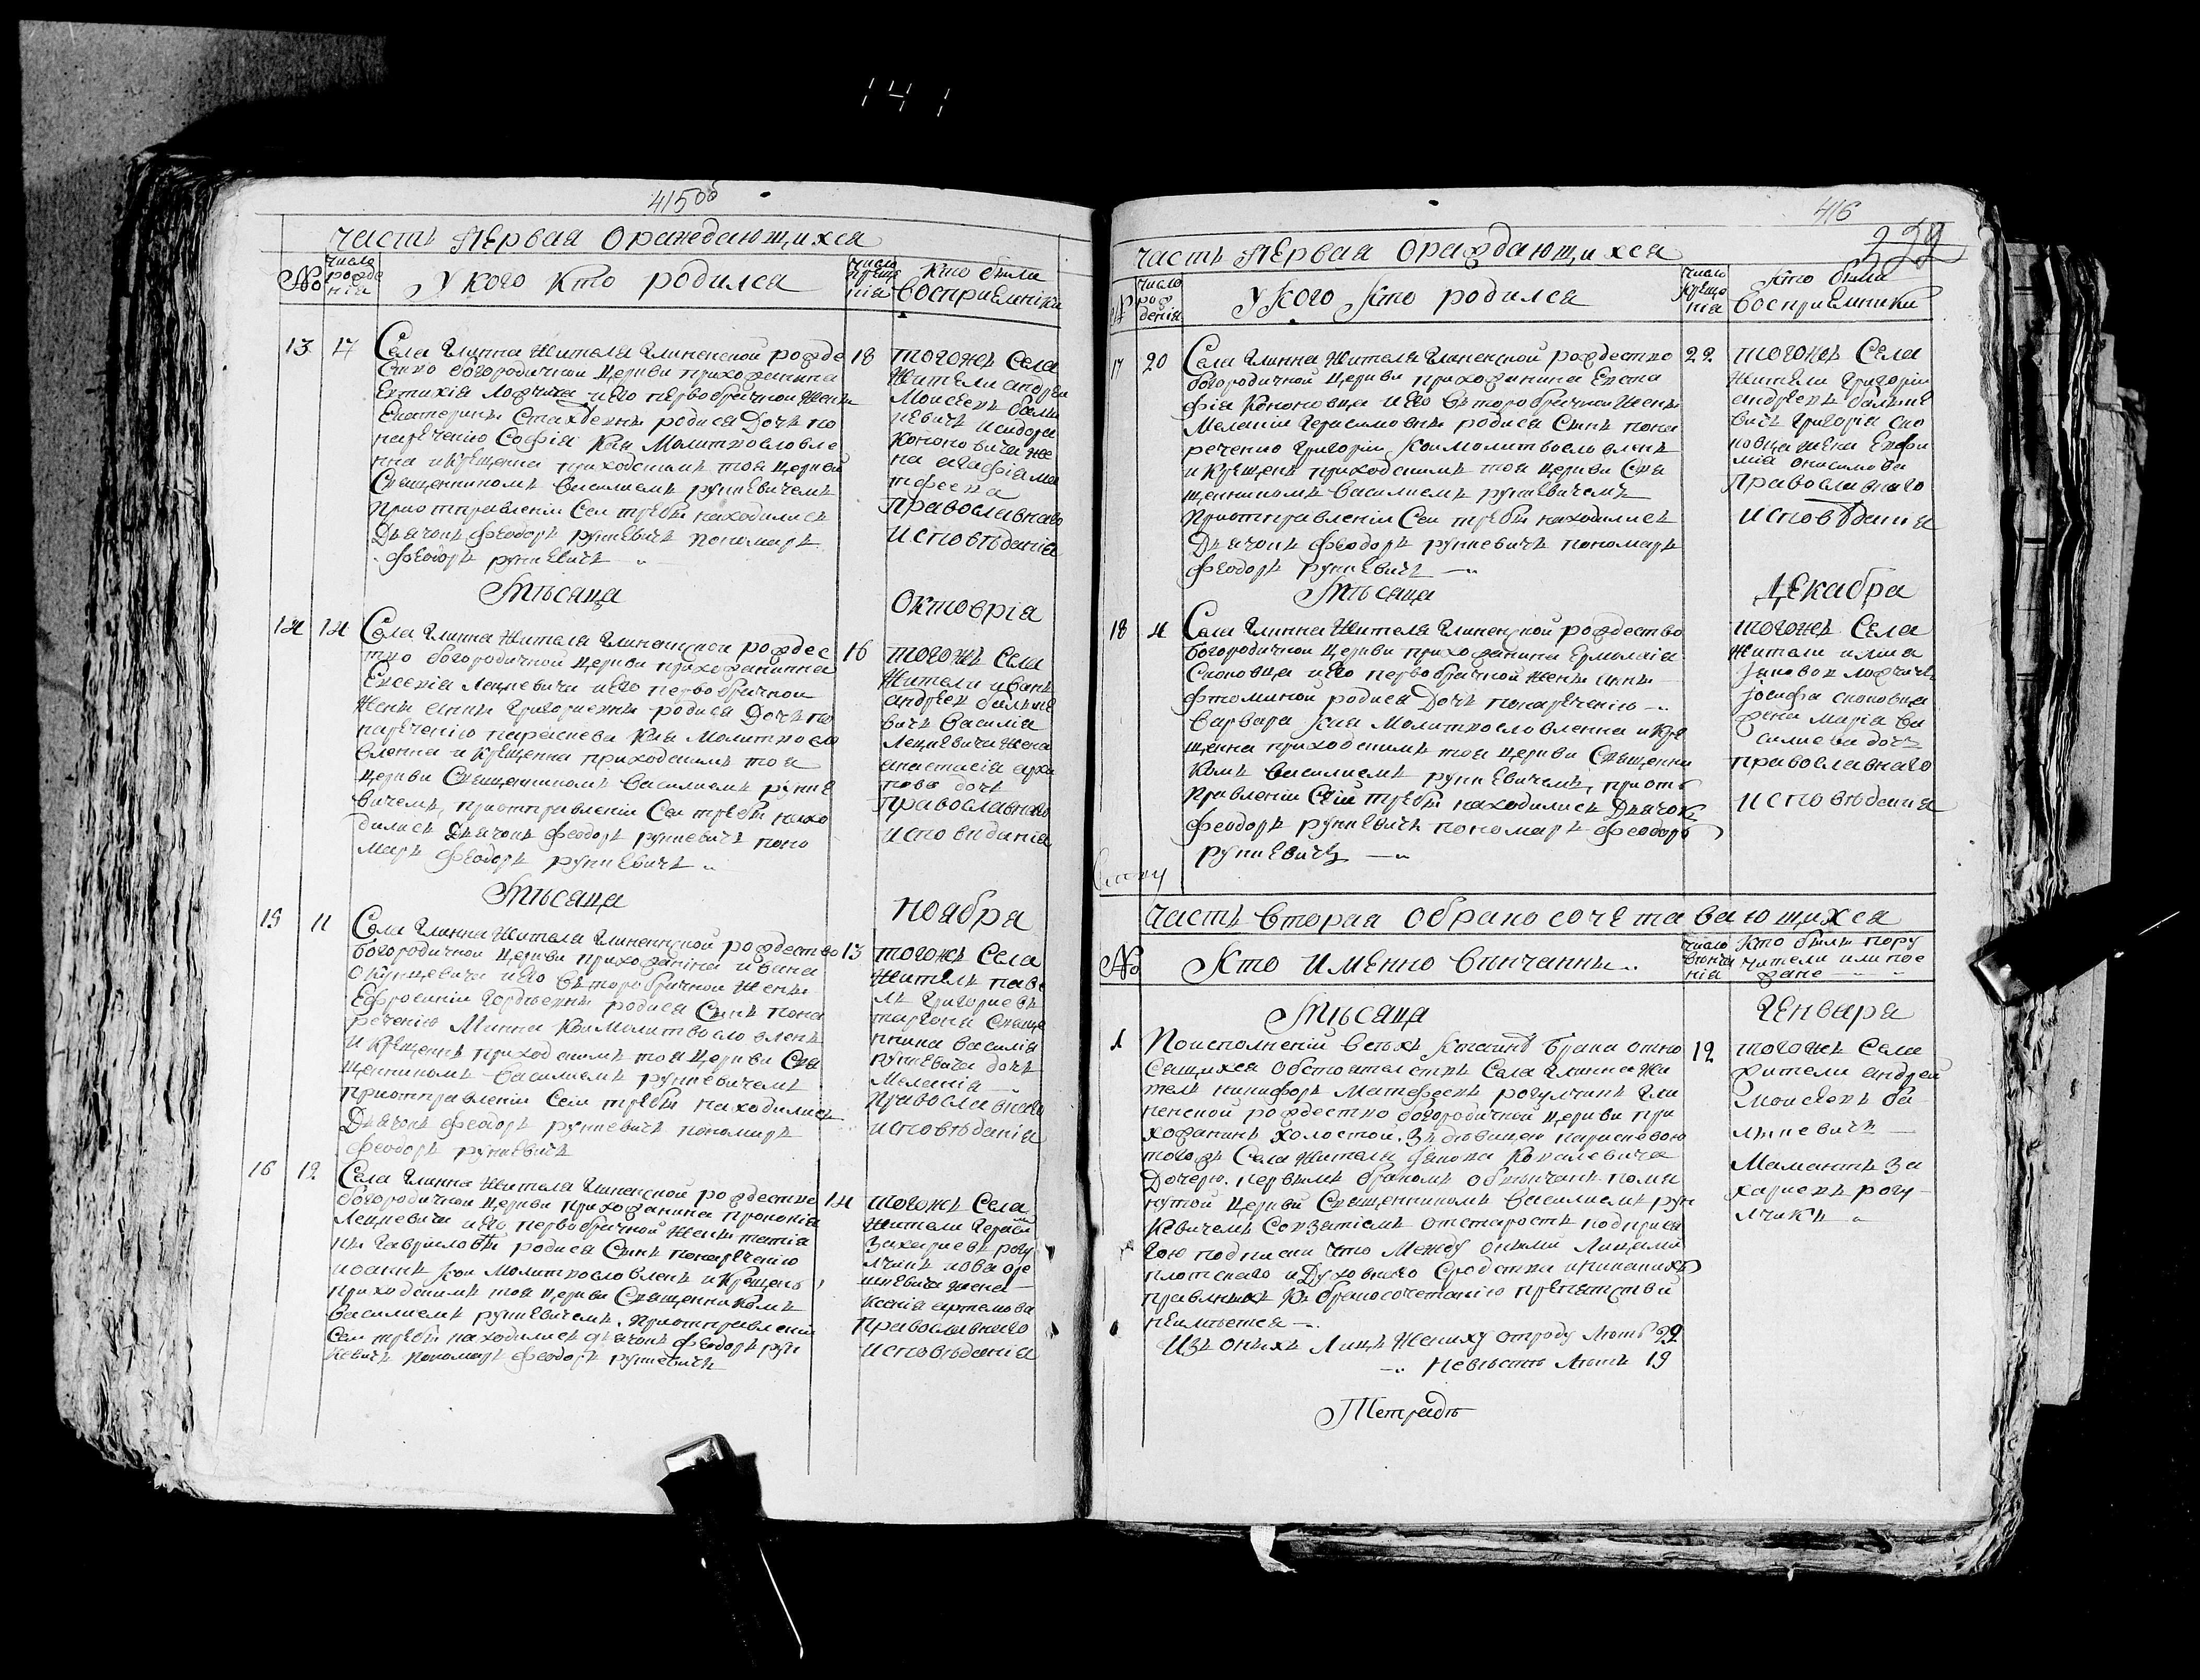 141
415об
часть первая ораждающихся
№
число рожде нія
У кого кто родился
число креще нія
кто были восприемники
13 17 18
Села Глинна жителя Глиненской рожде
ство богородичной церкви прихожанина
Евтихія и его первобрачной жены
Екатерины родися дочь по
наречению Софія коя молитвословле
нна и крещенна приходскимъ тоя церкви
Священникомъ Василиемъ рупневичемъ
при отправленіи сей требы находились
Дьячокъ феодоръ рупневичъ пономарь
феодоръ рупневичъ
тогожъ Села
жители андрей
Моисеевъ балы
невичъ исидора
Кононовича же
на агафія ма
тфеева
Православнаго
исповѣданія
Мѣсяца Октоврія
14 14 16
Села Глинна жителя Глиненской рождес
тво богородичной церкви прихожанина
Евсевія Лецкевича и его первобрачной
жены анны Григориевны родися Дочь по
наречению параскева коя Молитвосло
вленна и крещенна приходскимъ тоя
церкви Священникомъ Василиемъ рупне
вичемъ, при отправленіи Сей требы нахо
дились Дьячокъ феодоръ рупневичъ поно
марь феодоръ рупневичъ
тогожъ Села
жители иванъ
андреевъ балыне
вичъ Василія
Лецкевича жена
анастасія архи
пова дочь
Православнаго
исповиданія
Мѣсяца Ноября
15 11 13
Села Глинна жителя Глиненской рождество
богородичной церкви прихожанина ивана
и его второбрачной жены
Ефросиніи Гордѣевны родися Сынъ пона
речению Минна кои Молитвословленъ
и крещенъ приходскимъ тоя церкви Свя
щенникомъ Василиемъ рупневичемъ
при отправленіи Сей требы находились
Дьячокъ феодоръ рупневичъ пономарь
феодоръ рупневичъ
тогожъ Села
житель паве
лъ Григориевъ
Свяще
нника Василія
рупневича дочь
Меланія
Православнаго
исповѣданія
16 12 14
Села Глинна жителя Глиненской рождество
богородичной церкви прихожанина прокопія
Лецкевича и его первобрачной жены татіа
ны Гавриловны родися Сынъ понаречению
иоаннъ кои молитвословленъ и крещенъ
приходскимъ тоя церкви Священникомъ
Василиемъ рупневичемъ, при отправленіи
Сей требы находились дьячокъ феодоръ рупне
невичъ пономарь феодоръ рупневичъ
тогожъ Села
жители Герасим
Захариевъ рогу
льчикъ
жена
Ксенія артемова
Православнаго
исповѣданія
416
239
часть первая ораждающихся
№
число рож денія
У кого кто родился
число креще нія
кто были восприемники
17 20 22
Села Глинна жителя Глиненской рождество
богородичной церкви прихожанина Евста
фія Кононовца и его второбрачной жены
Меланіи Герасимовны родися Сынъ пона
речению Григорій кои молитвословленъ
и крещенъ приходскимъ тоя церкви Свя
щенникомъ Василиемъ рупневичемъ
при отправленіи Сей требы находились
Дьячокъ феодоръ рупневичъ пономарь
феодоръ рупневичъ
тогожъ Села
жители Григорій
андреевъ балыне
вичъ Григорія Ско
повца жена Евфи
мія онисимова
Православнаго
исповѣданія
Мѣсяца Декабря
18 4
Села Глинна жителя Глиненской рождество
богородичной церкви прихожанина Ермолаія
Скоповца и его первобрачной жены анны
фоминой родися Дочь понаречению
Варвара коя Молитвословленна и кре
щенна приходскимъ тоя церкви Священни
комъ Василиемъ рупневичемъ, при от
правленіи Сей требы находились Дьячокъ
феодоръ рупневичъ пономарь феодоръ
рупневичъ
тогожъ Села
жители илиа
іосифа скоповца
жена марія ва
силиева дочь
православнаго
исповѣданія
часть вторая обракосочетавающихся
№
Кто именно вѣнчанны
число вѣнча нія
кто были пору чители или пое зжане
Мѣсяца Генваря
1 12
По исполненіи всѣхъ къ браку отно
сящихся обстоятельствъ Села Глинна жи
тель никифоръ Матфеевъ рогулчикъ Гли
ненской рождество богородичной церкви при
хожанинъ холостой. Зъ дѣвицею параскевою
тогожъ Села жителя якова Ковалевича
Дочерю. первымъ бракомъ обвѣнчанъ помя
нутой церкви Священникомъ Василиемъ руп
невичемъ Со взатіемъ отстаростъ подприся
гою подписки что Между оными Лицами
плотскаго и Духовнаго Сродства и
правлныхъ къ бракосочетанію препятствій
неимѣется
Изъ оныхъ Лицъ жениху отроду Лѣтъ 22
невѣстѣ Лѣтъ 19
тогожъ Села
жители андрей
Моисеевъ ба
лыневичъ
Мамантъ За
хариевъ рогу
льчикъ
Тетрадь